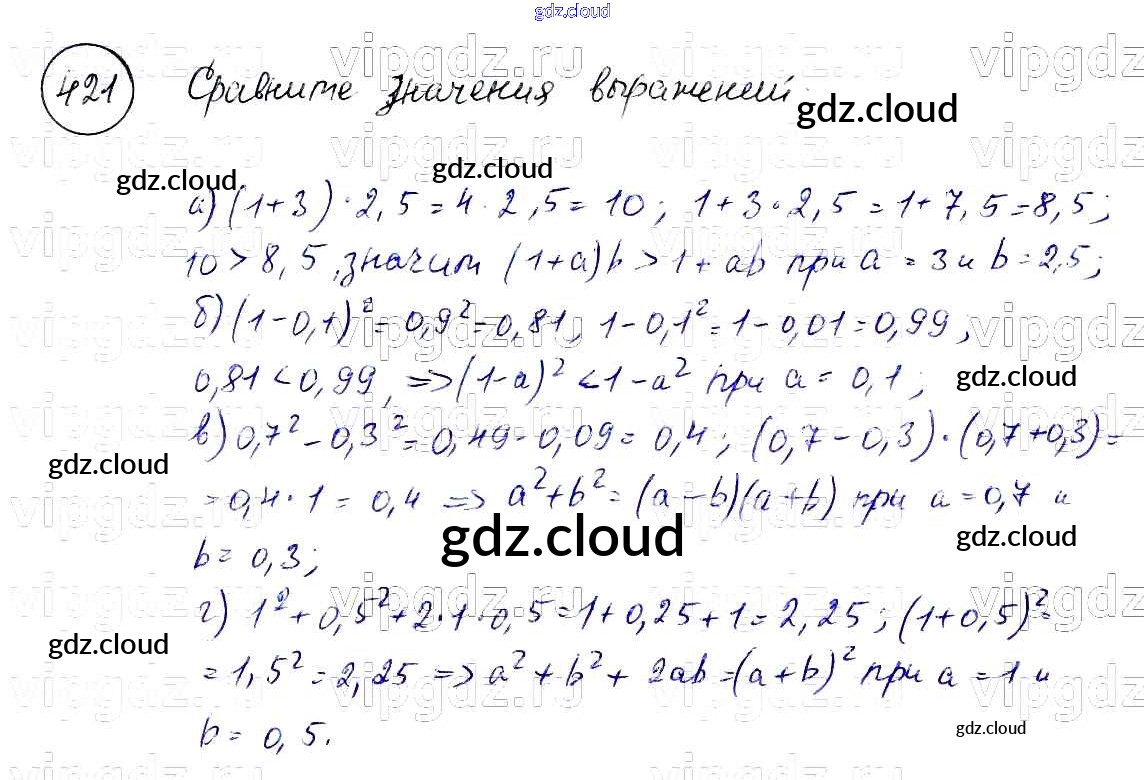 gdz.cloud
421 Сравните значения выражений.
gdz.cloud
vipgdz.ru vipgdz.ru vipgdz.ru vipgdz.ru
gdz.cloud gdz.cloud
а) (1+3)·2,5=4·2,5=10; 1+3·2,5=1+7,5=8,5;
10>8,5, значит (1+a)b>1+ab при a=3 и b=2,5;
б) (1-0,1)²=0,9²=0,81, 1-0,1²=1-0,01=0,99,
0,81<0,99, => (1-a)²<1-a² при a=0,1;
gdz.cloud
в) 0,7²-0,3²=0,49-0,09=0,4; (0,7-0,3)·(0,7+0,3)=
gdz.cloud
=0,4·1=0,4 => a²+b²=(a-b)(a+b) при a=0,7 и
gdz.cloud gdz.cloud
b=0,3;
г) 1²+0,5²+2·1·0,5=1+0,25+1=2,25; (1+0,5)²=
gdz.cloud
=1,5²=2,25 => a²+b²+2ab=(a+b)² при a=1 и
b=0,5.
gdz.cloud